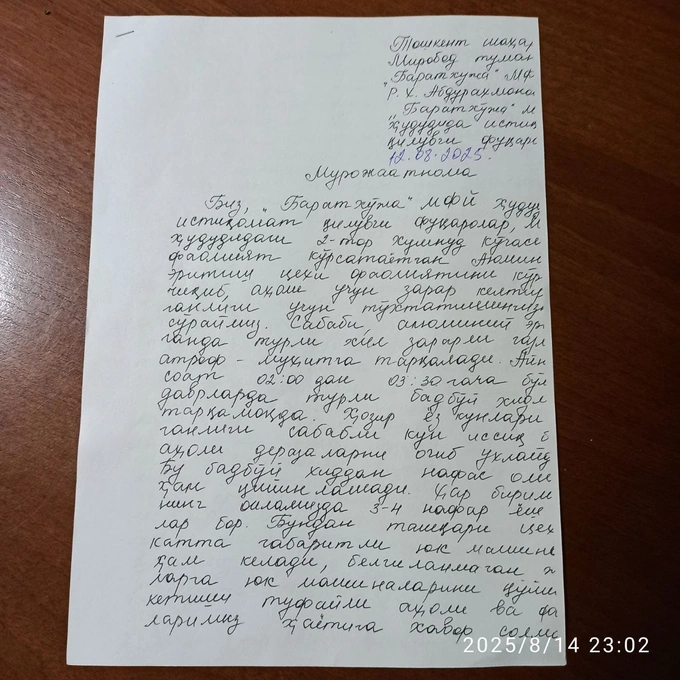 Тошкент шаҳар
Миробод туман
"Баратхужа" МФ
Р. Х. Абдурахмона
„Баратхўжа" М
ҳудудида истиқ
қилувчи фуқаро
12.08.2025.
Мурожаатнома
Биз, „Баратхўжа" МФЙ ҳудуд
истиқомат қилувчи фуқаролар, М
ҳудудидаги 2-тор Хумнуд кўчаси
фаолият кўрсатаётган Аюмин
эритиш цехи фаолиятини кўр
чиқиб, аҳоли учун зарар келтир
ганлиги учун тўхтатишингиз
сўраймиз. Сабаби, алюминий эр
ганда турли хил зарарли газл
атроф - муҳитга тарқалади. Айн
соат 02:00 дан 03:30 гача бўл
даврларда турли бадбўй хидл
тарқамоқда. Ҳозир ёз кунлари
ганлиги сабабли кун иссиқ б
аҳоли деразаларни очиб ухлайд
Бу бадбўй хиддан нафас оли
ҳам қийинлашади. Ҳар бирим
нинг оиламизда 3-4 нафар ёш
лар бор. Бундан ташқари цех
катта габаритли юк машине
ҳам келади, белгиланмаган ж
ларга юк машиналарини қўйи
кетиши туфайли аҳоли ва фа
ларимиз ҳаётига хавф солм
2025/8/14 23:02